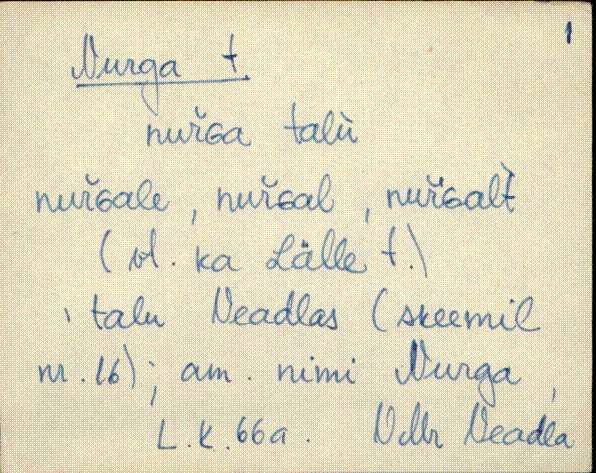 1
Nurga t.
nuřGa talù
nuřGale , nuřGal , nuřGalt̀
(vt. ka Lälle t.)
talu Neadlas (skeemil
nr. 16); am. nimi Nurga ,
L.K. 66a. Vdlr Neadla